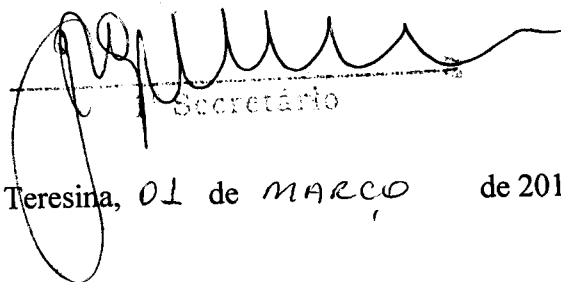 Secretário
Teresina, 01 de MARÇO de 201